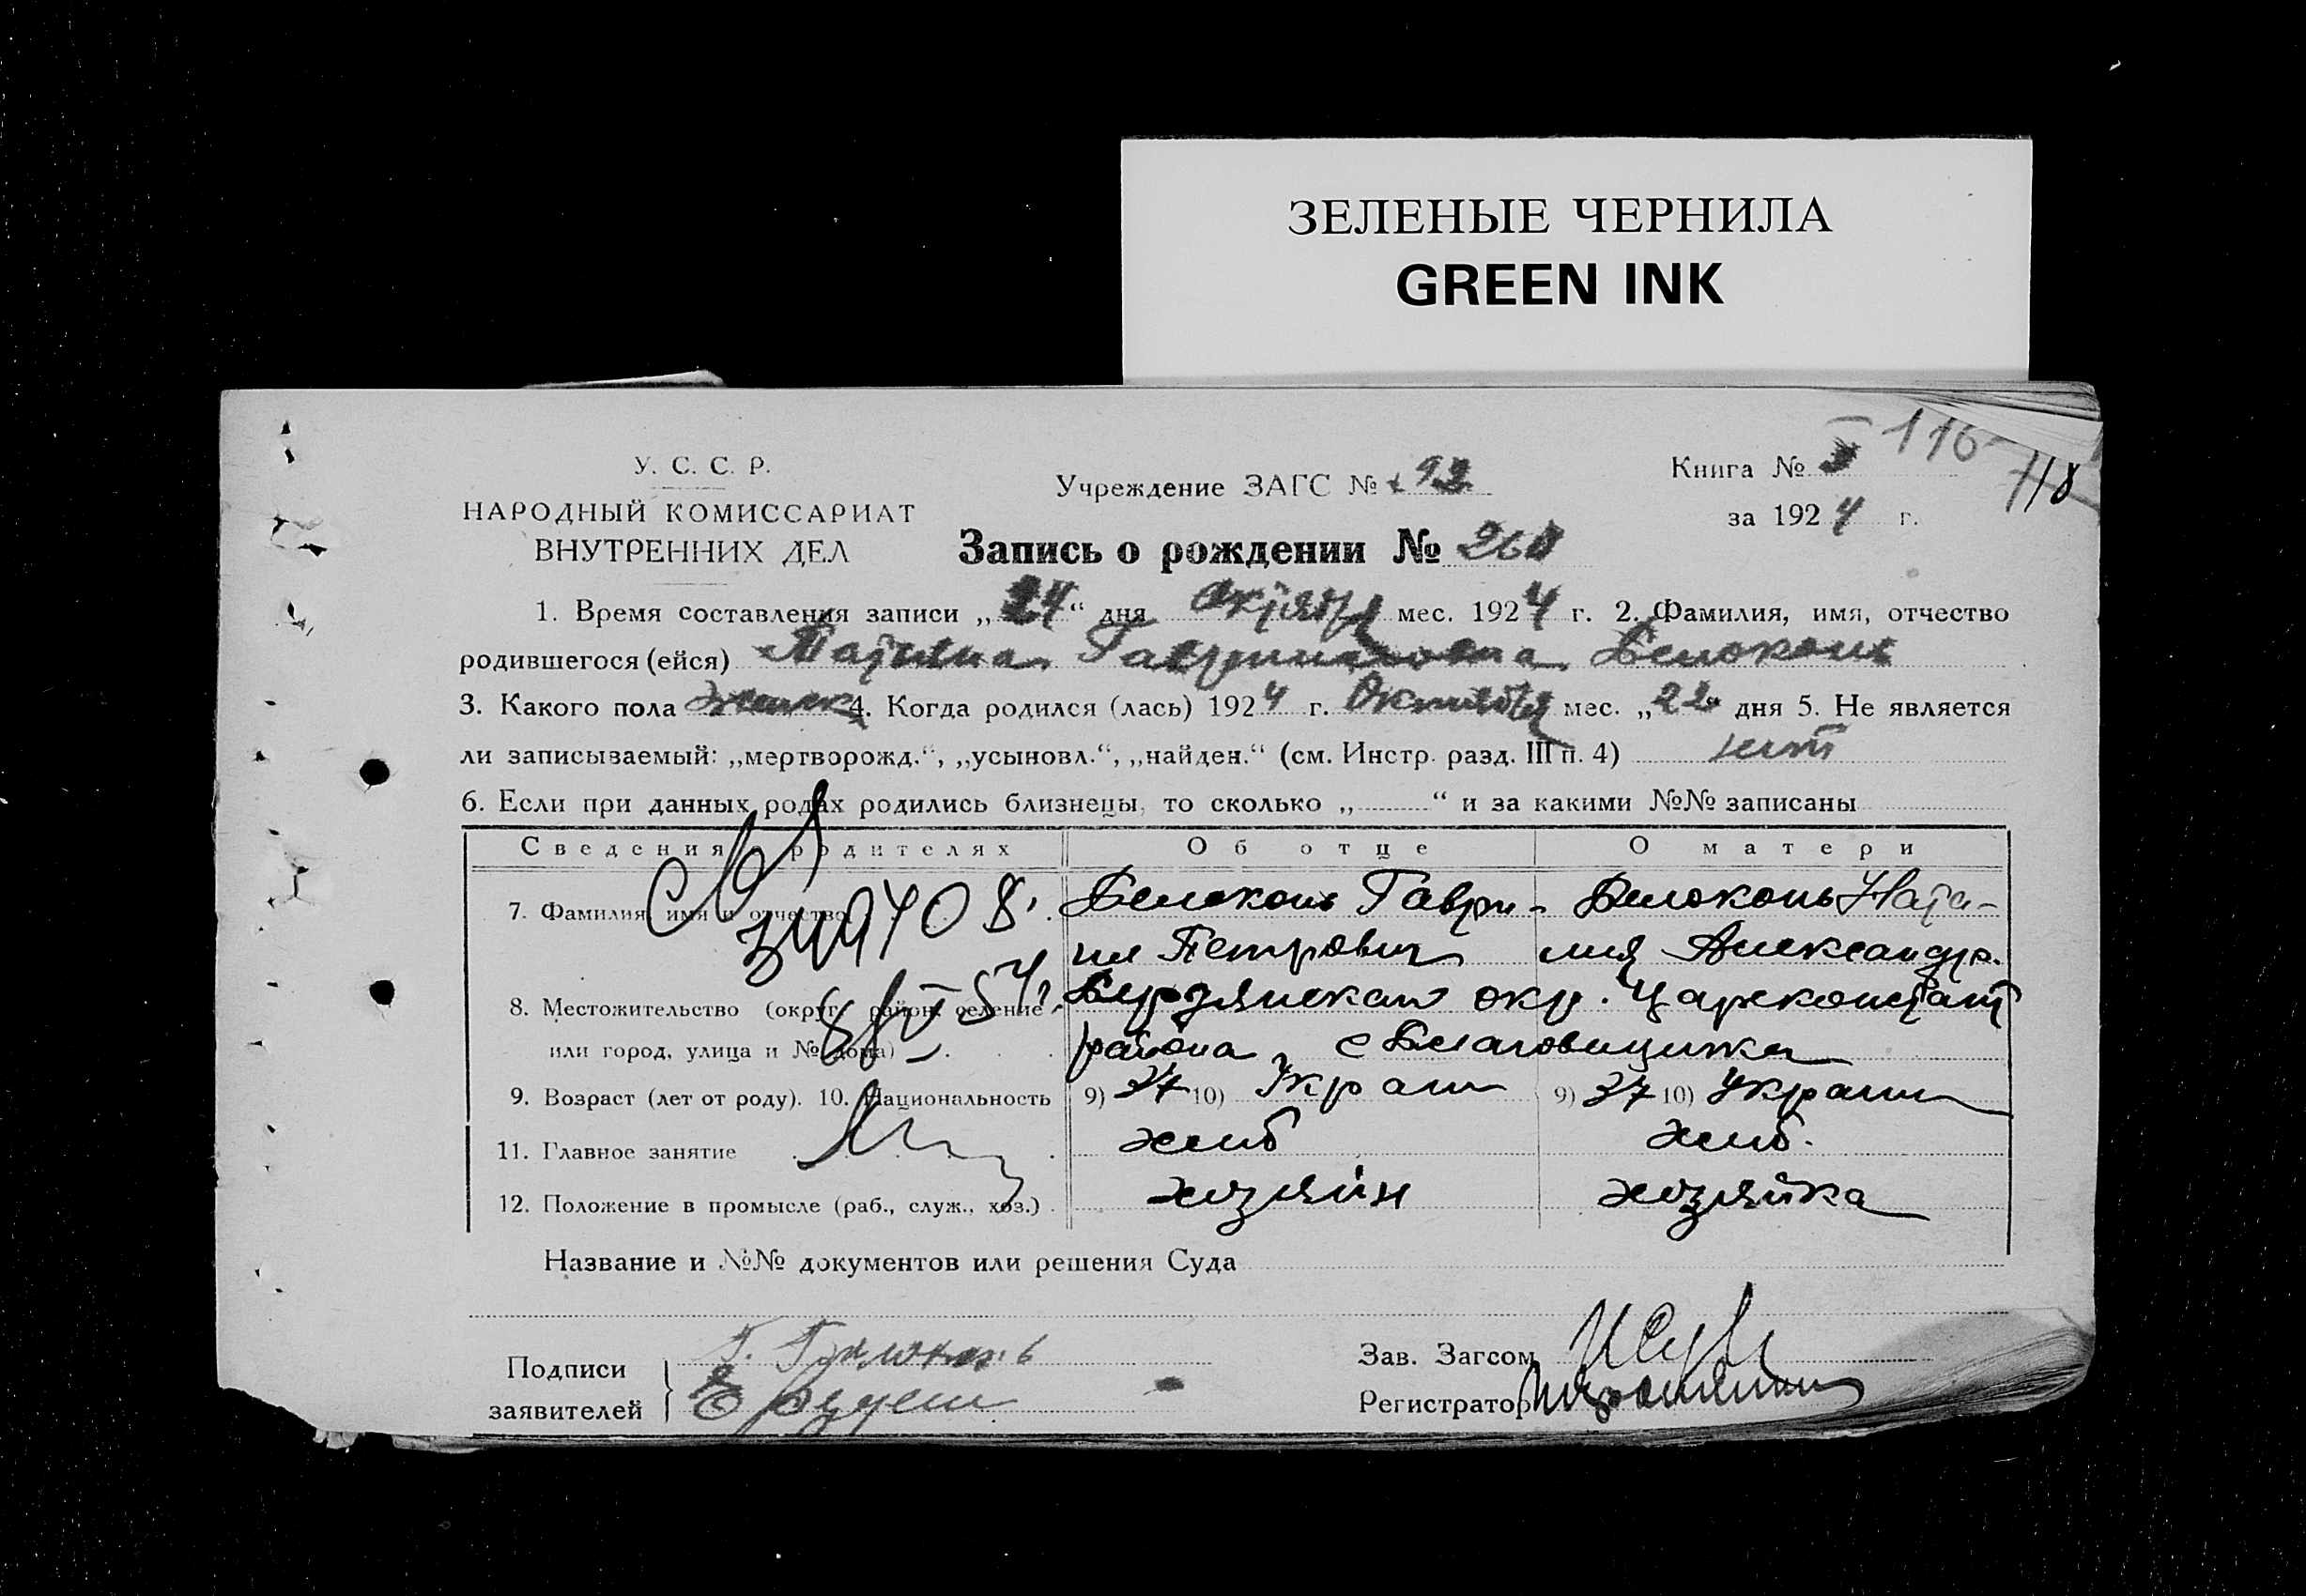 ЗЕЛЕНЫЕ ЧЕРНИЛА
GREEN INK
116
118
У. С. С. Р.
НАРОДНЫЙ КОМИССАРИАТ
ВНУТРЕННИХ ДЕЛ
Учреждение ЗАГС №
Книга №
за 1924 г.
Запись о рождении № 260
1. Время составления записи „24“ дня Октября мес. 1924 г. 2. Фамилия, имя, отчество
родившегося (ейся) Татьяна Гавриловна Белоконь
3. Какого пола женск 4. Когда родился (лась) 1924 г. Октября мес. „22“ дня 5. Не является
ли записываемый: „мертворожд.“, „усыновл.“, „найден.“ (см. Инстр. разд. III п. 4) нет
6. Если при данных родах родились близнецы, то сколько „ “ и за какими №№ записаны
Сведения о родителях Об отце О матери
7. Фамилия, имя и отчество Белоконь Гаври- Белоконь Ната-
ил Петрович лия Александр.
8. Местожительство (округ, район, селение Бердянская окр. Цареконстант
или город, улица и № дома) района, с Благовещенка
9. Возраст (лет от роду). 10. Национальность 9) 37 10) Украин 9) 37 10) Украин
11. Главное занятие хлеб хлеб.
12. Положение в промысле (раб., служ., хоз.) хозяин хозяйка
Название и №№ документов или решения Суда
Подписи
заявителей
Г. Белоконь
Зав. Загсом
Регистратор